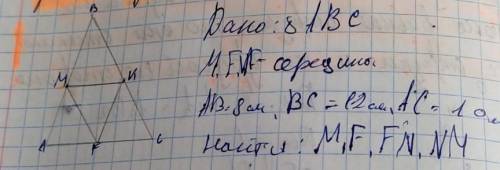 B
Дано: △ ABC
M, F, N - середины
M N
AB = 8 см, BC = 12 см, AC = 10 см
A F C
Найти: MF, FN, NM